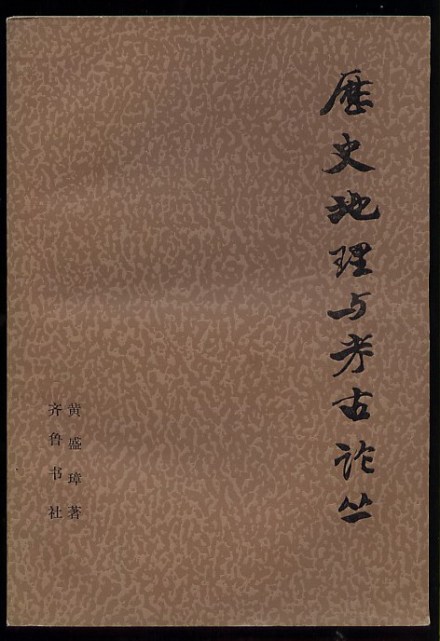 歷史地理与考古论丛
黄盛璋著
齐鲁书社